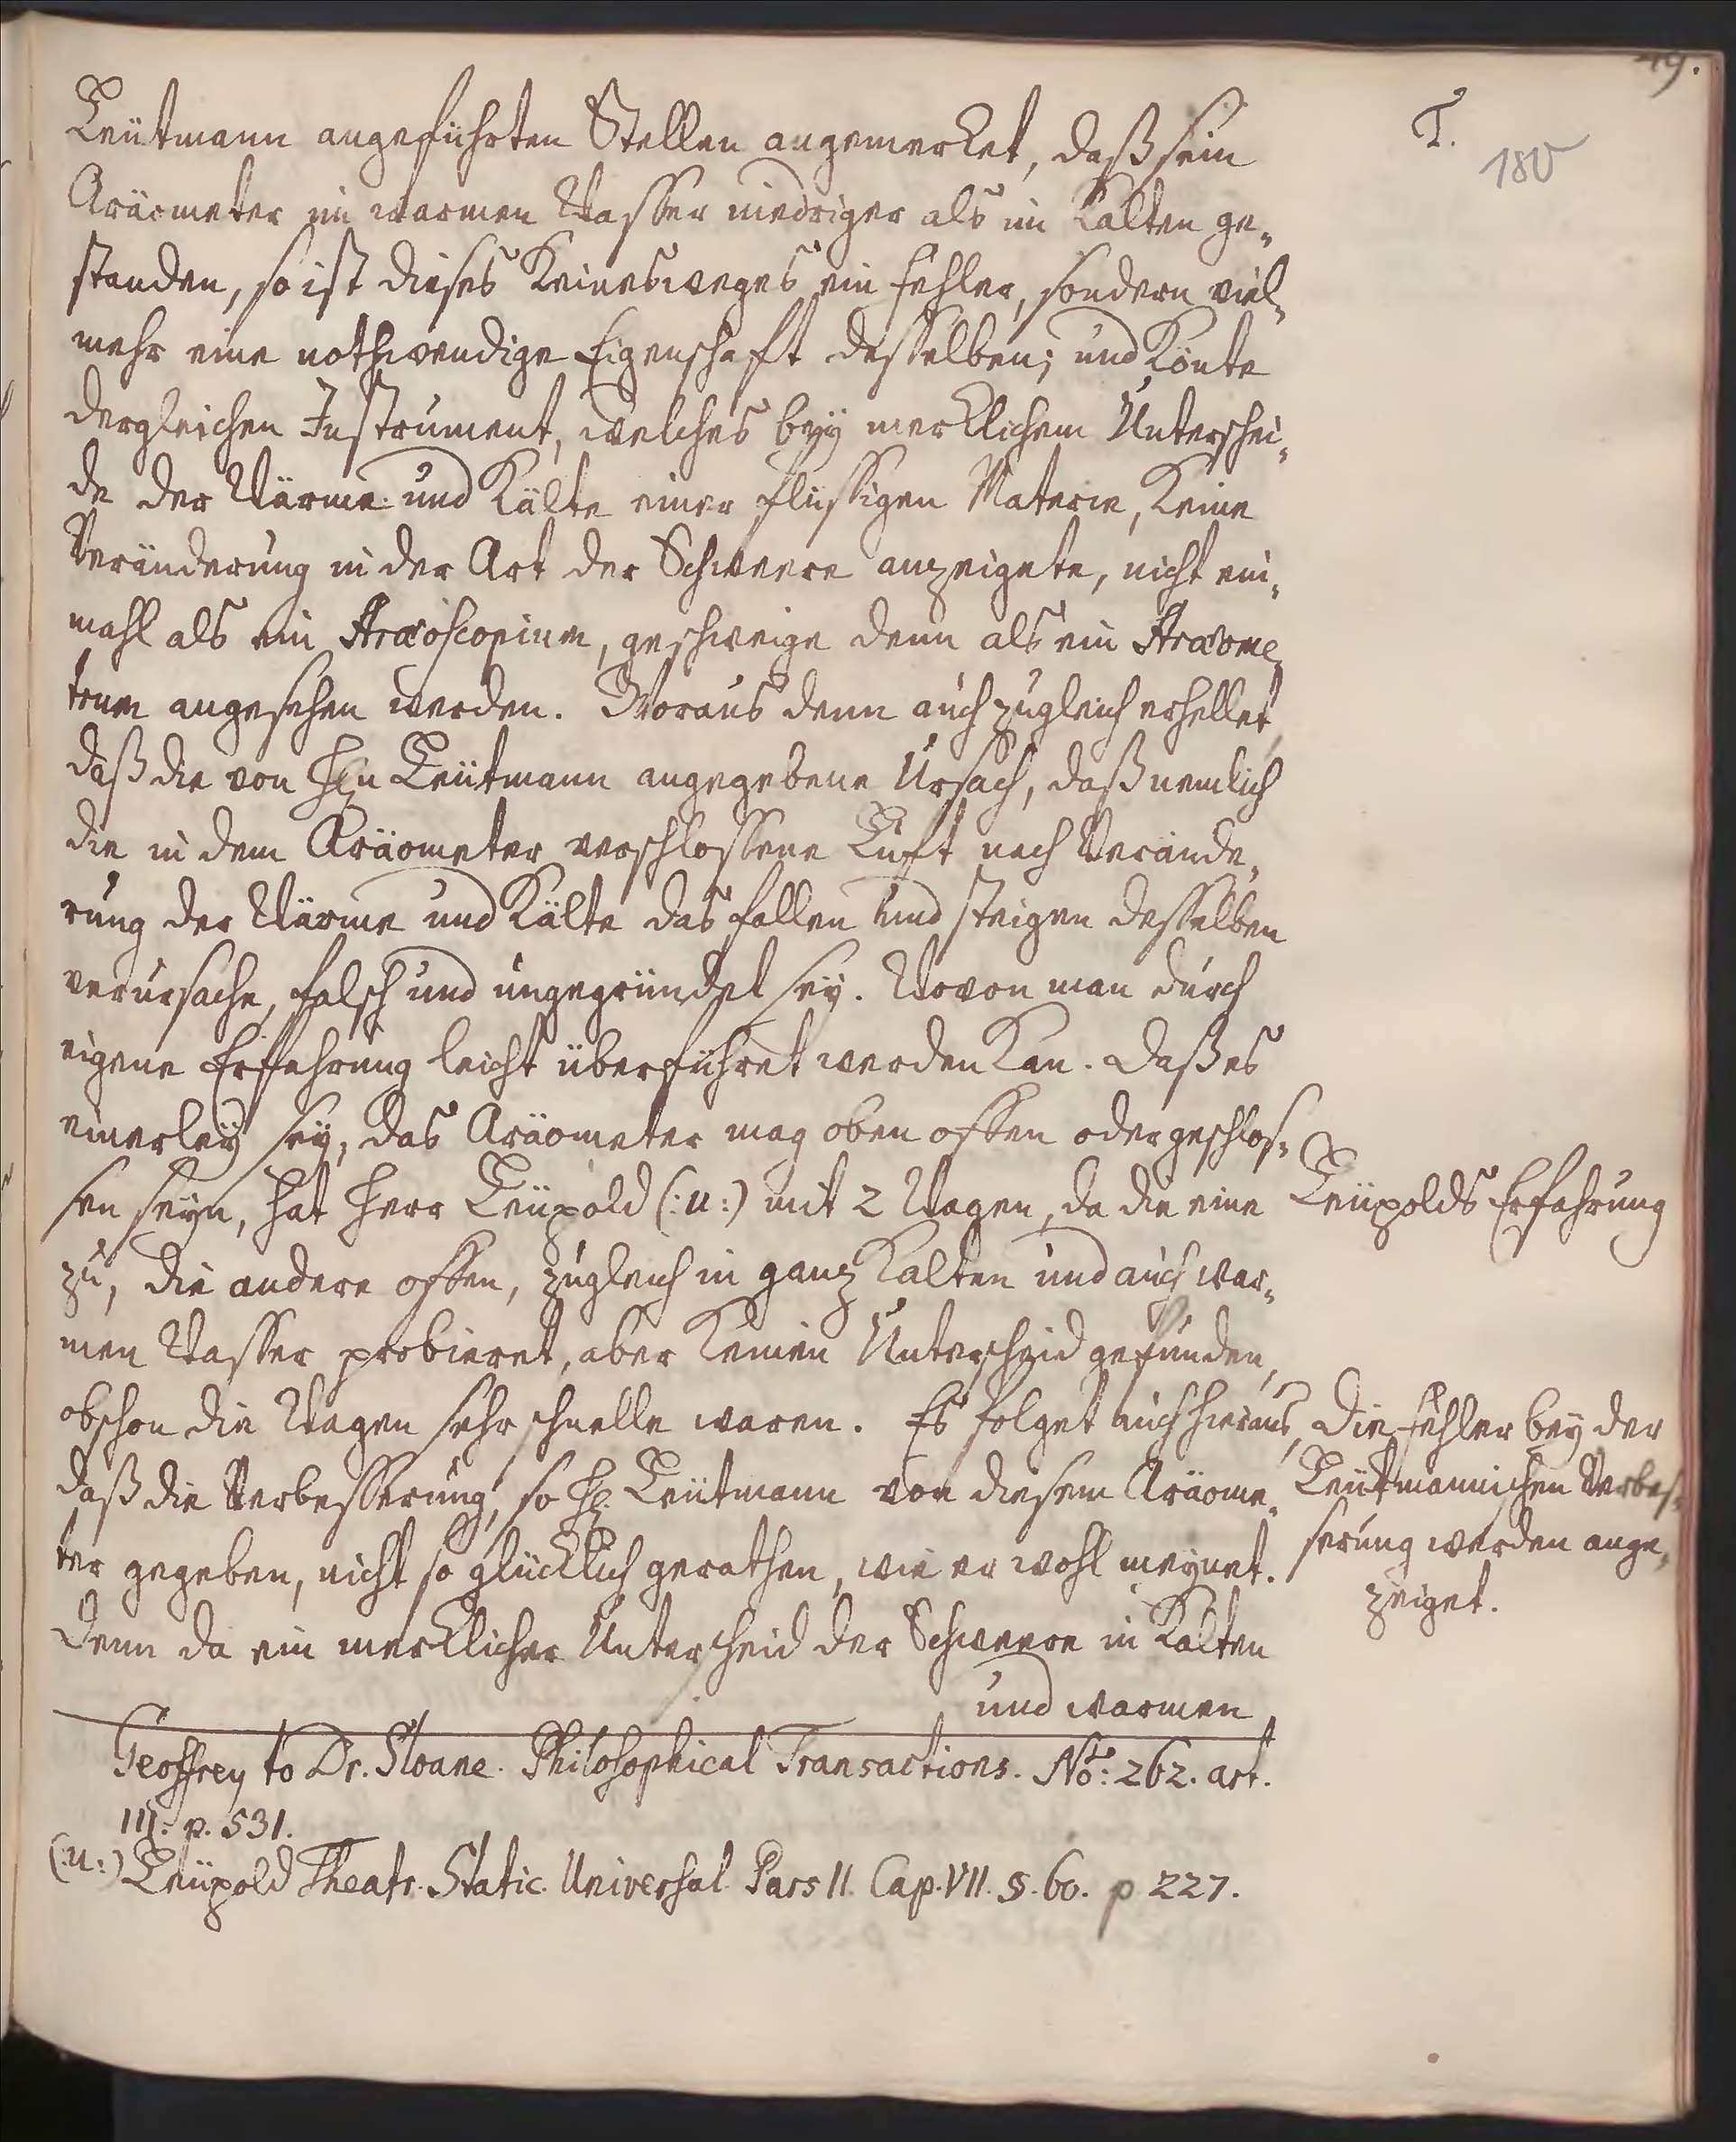 49.
T.
180
Leütmann angeführten Stellen angemercket, daß sein
Aräometer im warmen Wasser niedriger als im Kalten ge-
standen, so ist dieses Keinesweges ein Fehler, sondern viel-
mehr eine nothwendige Eigenschafft desselben; und Könte
dergleichen Instrument, welches beÿ mercklichem Unterschei-
de der Wärme und Kälte einer flüssigen Materie, Keine
Veränderung in der Art der Schweere anzeigete, nicht ein-
mahl als ein Aræoscopium, geschweige denn als ein Aræome-
trum angesehen werden. Woraus denn auch zugleich erhellet,
daß die von Hln Leütmann angegebene Ursach, daß nemlich
die in dem Aräometer verschlossene Luft nach Verände-
rung der Wärme und Kälte das fallen und steigen desselben
verursache, falsch und ungegründet seÿ. Wovon man durch
eigene Erffahrung leicht überführet werden Kan. Daß es
einerleÿ seÿ, das Aräometer mag oben offen oder geschlos-
sen seÿn, hat Herr Leüpold (:u:) mit 2 Wagen, da die eine
Leüpolds Erfahrung
zu, die andere offen, zugleich in ganz Kalten und auch war-
men Wasser probieret, aber Keinen Unterscheid gefunden,
obschon die Wagen sehr schnelle waren. Es folget auch hieraus,
daß die Verbesserung, so Hl. Leütmann von diesem Aräome-
ter gegeben, nicht so glücklich gerathen, wie er wohl meÿnet.
Denn da ein mercklicher Unterscheid der Schweere in Kalten
und warmen
Die Fehler beÿ der
Leütmannischen Verbes-
serung werden ange-
zeiget.
Geoffrey to Dr. Sloane. Philosophical Transactions. No: 262. art.
III. p. 531.
(:u:) Leüpold Theatr. Static. Universal. Pars II. Cap. VII. §. 60. p 227.